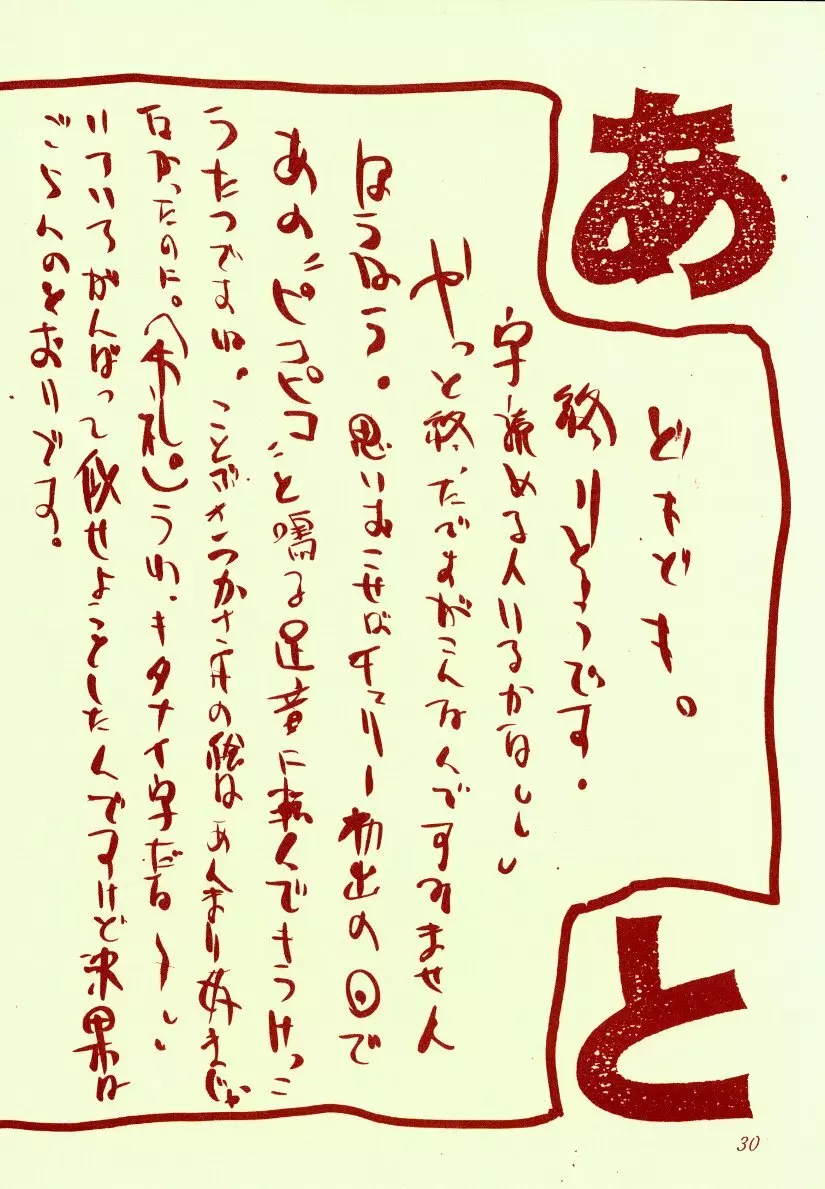 あと
どもども。
終りそうです。
字読める人いるかなしし
やっと終ったですがこんなんですみません
ほうほう。思いおこせばチェリー初出の回で
あの"ピコピコ"と鳴る足音に転んでもうけっこ
うたつですね。ことぶきつかさ
の絵はあんまり好きじゃ
なかったのに。(失礼。)うわ、キタナイ字だなーしし
いろいろがんばって似せようとしたんですけど結果は
ごらんのとおりです。
30